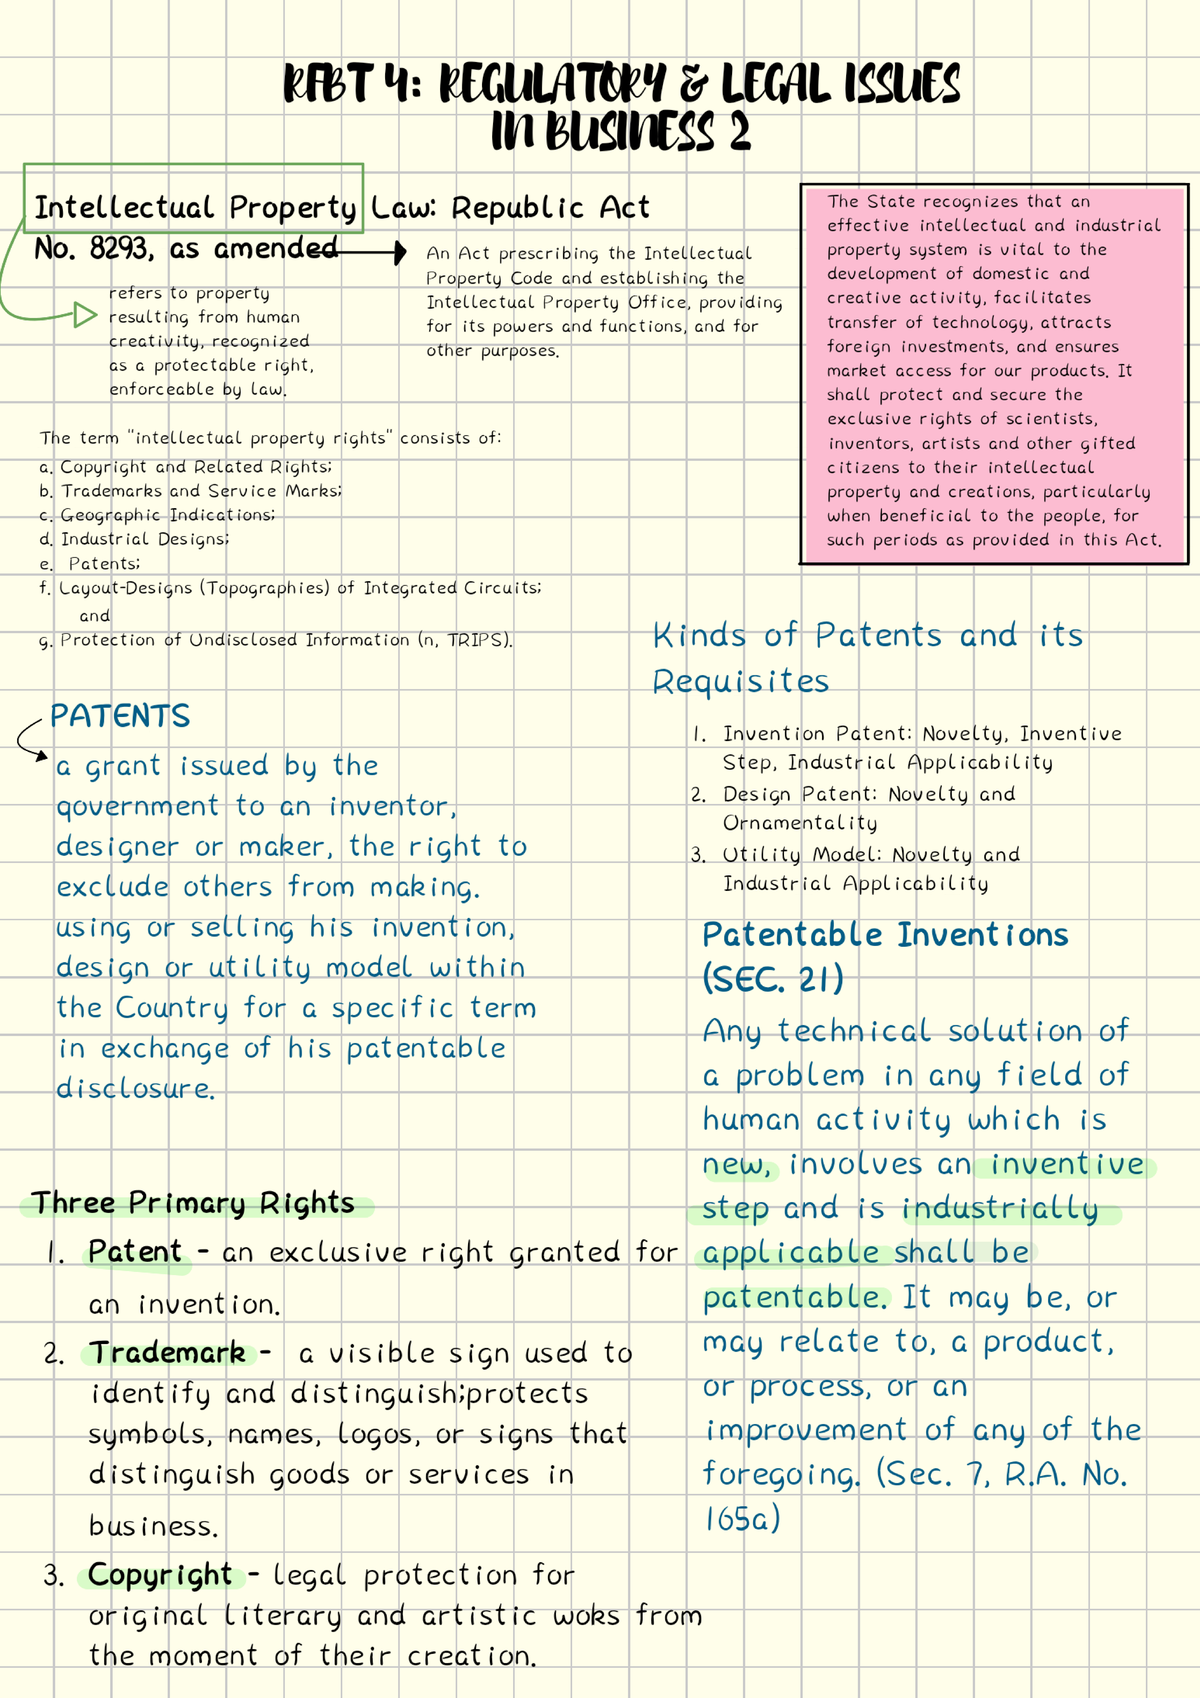 RFBT 4: REGULATORY & LEGAL ISSUES
IN BUSINESS 2
Intellectual Property Law: Republic Act
No. 8293, as amended
An Act prescribing the Intellectual
Property Code and establishing the
Intellectual Property Office, providing
for its powers and functions, and for
other purposes.
refers to property
resulting from human
creativity, recognized
as a protectable right,
enforceable by law.
The State recognizes that an
effective intellectual and industrial
property system is vital to the
development of domestic and
creative activity, facilitates
transfer of technology, attracts
foreign investments, and ensures
market access for our products. It
shall protect and secure the
exclusive rights of scientists,
inventors, artists and other gifted
citizens to their intellectual
property and creations, particularly
when beneficial to the people, for
such periods as provided in this Act.
The term "intellectual property rights" consists of:
a. Copyright and Related Rights;
b. Trademarks and Service Marks;
c. Geographic Indications;
d. Industrial Designs;
e. Patents;
f. Layout-Designs (Topographies) of Integrated Circuits;
and
g. Protection of Undisclosed Information (n, TRIPS).
PATENTS
a grant issued by the
qovernment to an inventor,
designer or maker, the right to
exclude others from making.
using or selling his invention,
design or utility model within
the Country for a specific term
in exchange of his patentable
disclosure.
Three Primary Rights
1. Patent - an exclusive right granted for
an invention.
2. Trademark - a visible sign used to
identify and distinguish;protects
symbols, names, logos, or signs that
distinguish goods or services in
business.
3. Copyright - legal protection for
original literary and artistic woks from
the moment of their creation.
Kinds of Patents and its
Requisites
1. Invention Patent: Novelty, Inventive
Step, Industrial Applicability
2. Design Patent: Novelty and
Ornamentality
3. Utility Model: Novelty and
Industrial Applicability
Patentable Inventions
(SEC. 21)
Any technical solution of
a problem in any field of
human activity which is
new, involves an inventive
step and is industrially
applicable shall be
patentable. It may be, or
may relate to, a product,
or process, or an
improvement of any of the
foregoing. (Sec. 7, R.A. No.
165a)